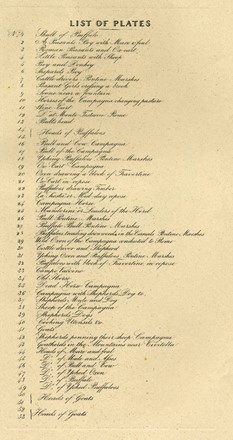 LIST OF PLATES
No. 1 Skull of Buffalo
2 A Peasants Boy with Mare & foal
3 Roman Peasants and Ox-cart
4 Little Peasants with Sheep
5 Boy and Donkey
6 Shepards Boy
7 Cattle drivers Pontine Marshes
8 Peasant Girls crossing a brook
9 Horses near a fountain
10 Horses of the Campagna changing pasture
11 Wine Cart
12 D° at Monte Testaccio Rome
13 Bulls head
14
15 Heads of Buffaloes
16 Bull and Cow Campagna
17 Bull of the Campagna
18 Buffaloes Pontine Marshes
19 Ox-Cart Campagna
20 Oxen drawing a Block of Travertine
21 Ox-Cart in repose
22 Buffaloes drawing Timber
23 La Siesta or Mid day repose
24 Campagna Horse
25 Mandarina or Leaders of the Herd
26 Bull Pontine Marshes
27 Buffalo Bull Pontine Marshes
28 Buffaloes treading down weeds in the Canals Pontine Marshes
29 Wild Oxen of the Campagna conducted to Rome
30 Cattle driver and Shepherd
31 Oxen and Buffaloes Pontine Marshes
32 Buffaloes with Block of Travertine in repose
33 Campo Vaccino
34 Old Horse
35 Dead Horse Campagna
36 Campagna with Shepherds, Dog &c.
37 Shepherds Mule and Dog
38 Sheep of the Campagna
39 Shepherds Dogs
40 Cooking Utensils &c.
41 Goats
42 Shepherds penning their sheep Campagna
43 Goatherds in the Mountains near
44 Heads of Mare and foal
45 D° of Mule and Ass
46 D° of Bull and Cow
47 D° of Yoked Oxen
48 D° of Buffalo
49 D° of Yoked Buffaloes
50
51 Heads of Goats
52 Heads of Goats